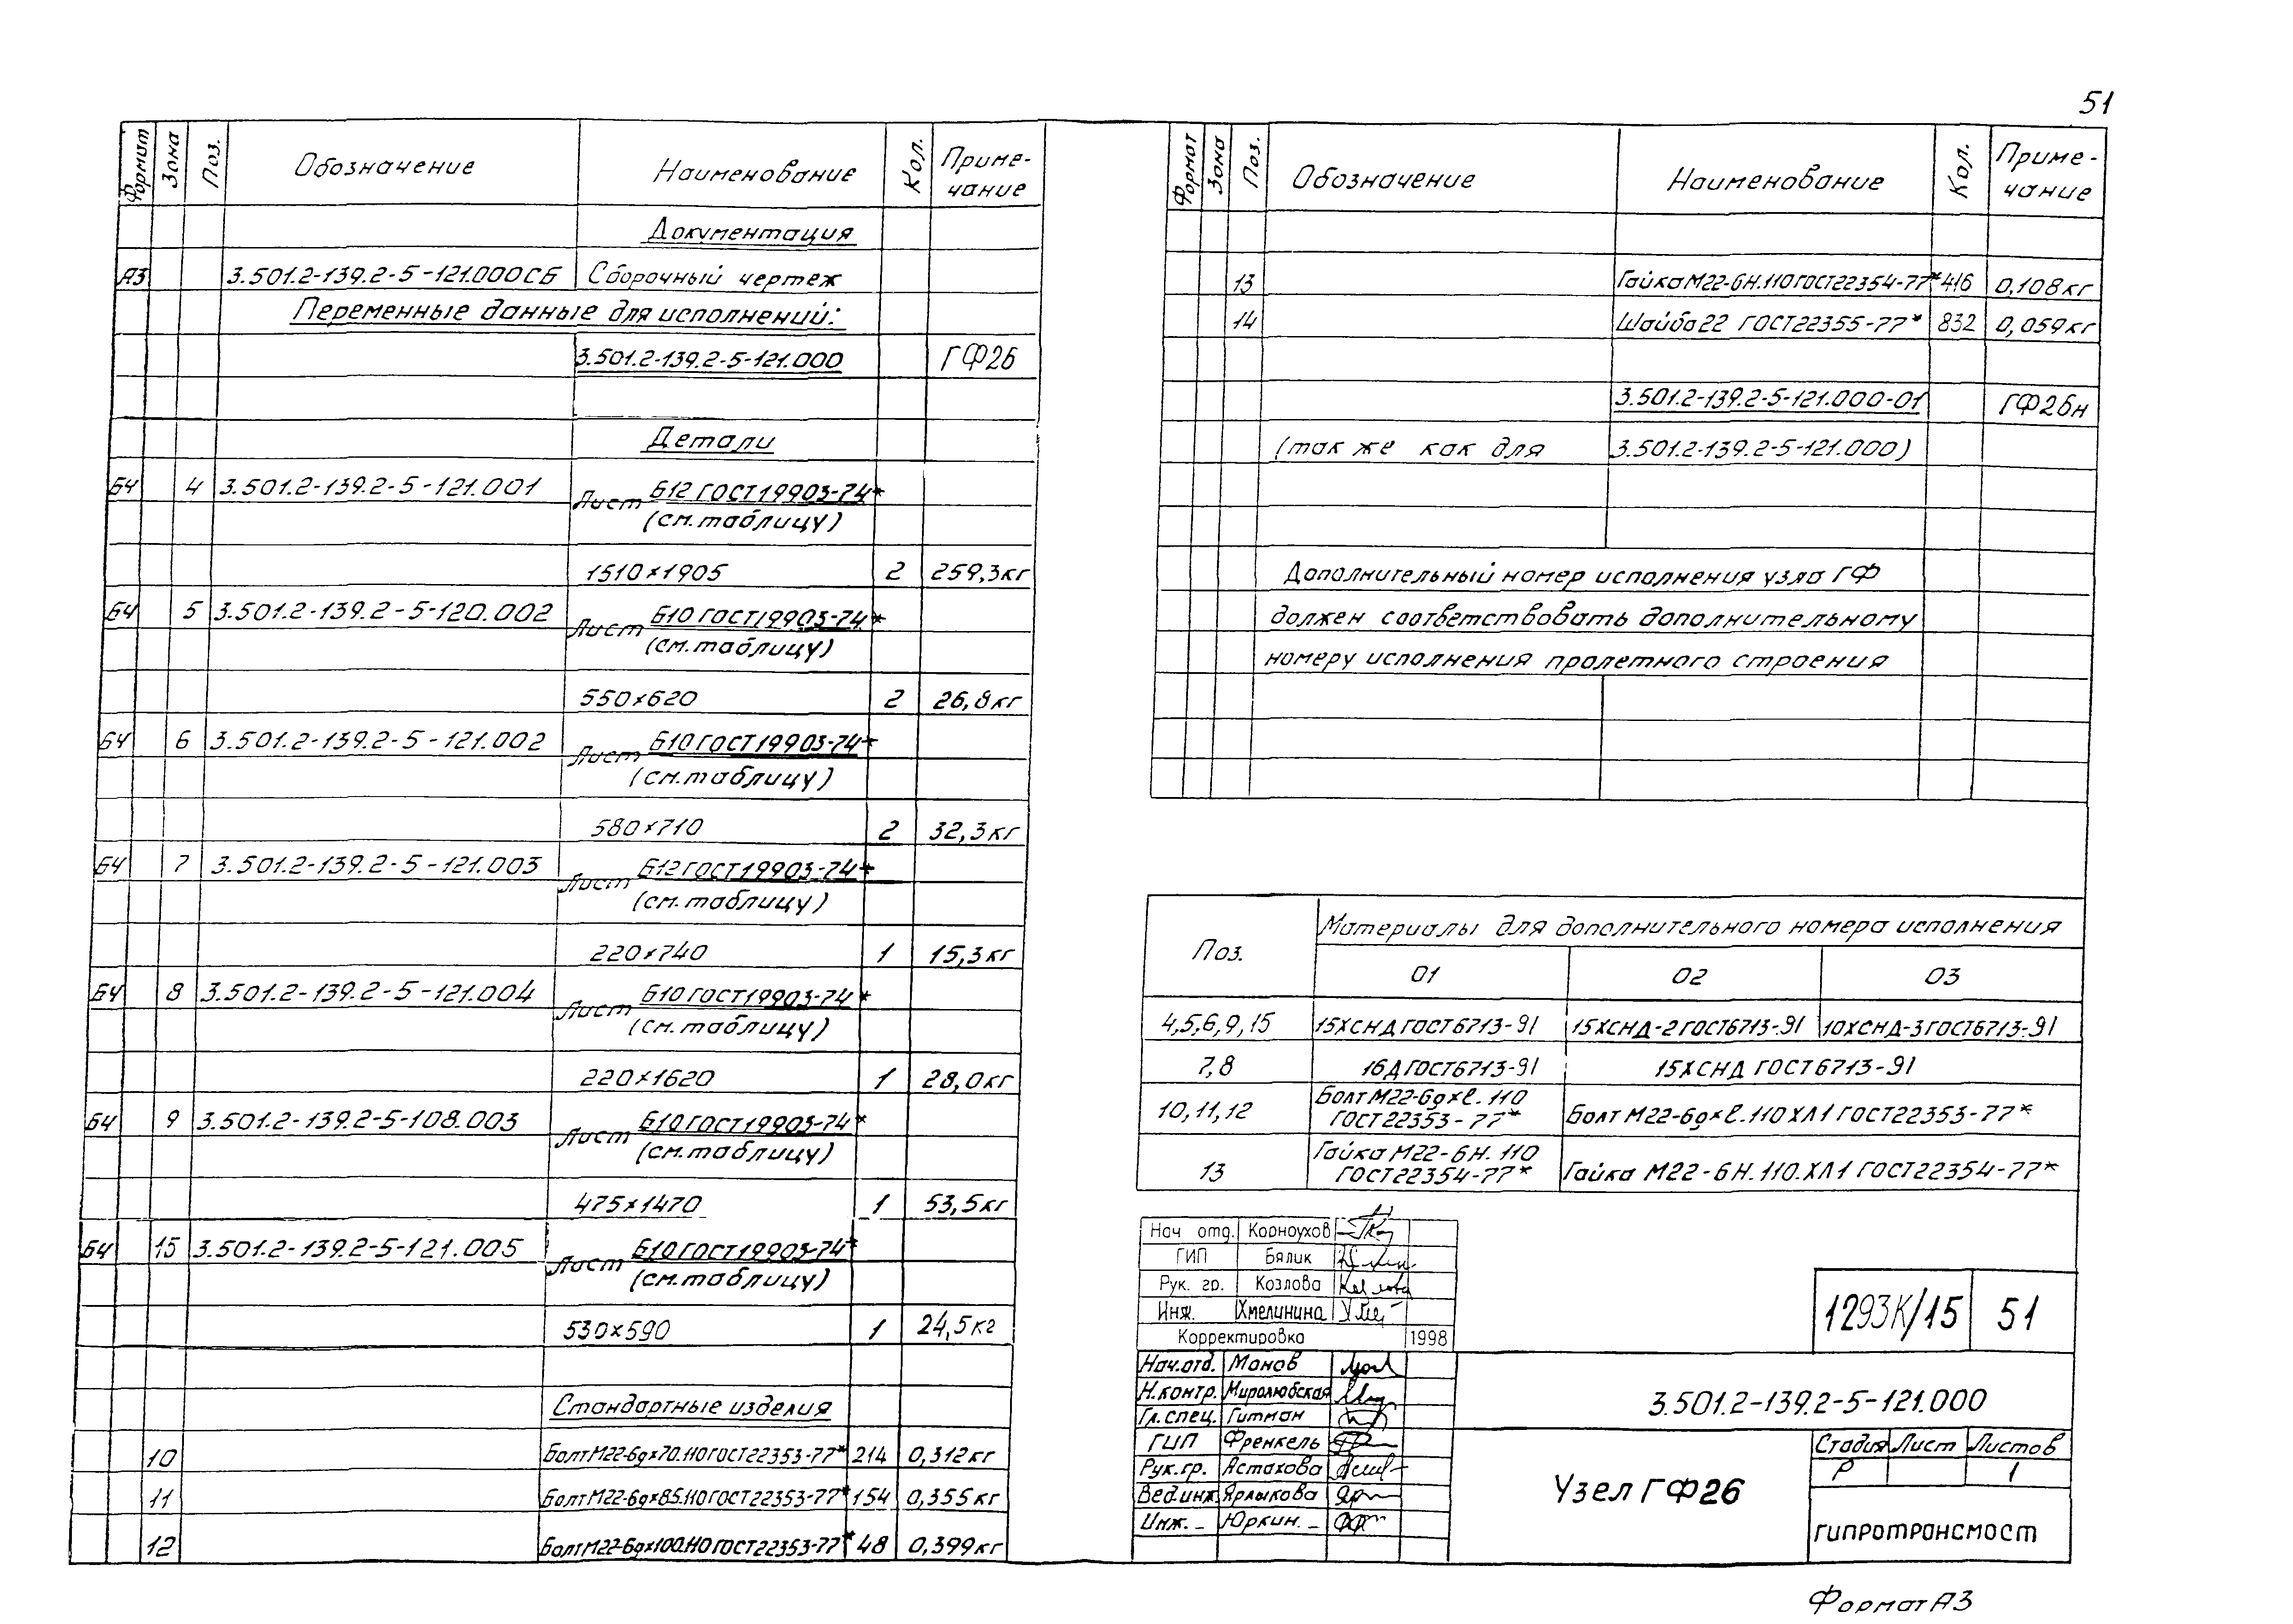 51
Формат Зона Поз. Обозначение Наименование Кол. Приме-
чание
Документация
А3 3.501.2-139.2-5-121.000СБ Сборочный чертеж
Переменные данные для исполнений:
3.501.2-139.2-5-121.000 ГФ26
Детали
БЧ 4 3.501.2-139.2-5-121.001 Лист Б12 ГОСТ19903-74*
(см.таблицу)
1510×1905 2 259,3кг
БЧ 5 3.501.2-139.2-5-120.002 Лист Б10 ГОСТ19903-74*
(см.таблицу)
550×620 2 26,8кг
БЧ 6 3.501.2-139.2-5-121.002 Лист Б10 ГОСТ19903-74*
(см.таблицу)
580×710 2 32,3кг
БЧ 7 3.501.2-139.2-5-121.003 Лист Б12 ГОСТ19903-74*
(см.таблицу)
220×740 1 15,3кг
БЧ 8 3.501.2-139.2-5-121.004 Лист Б10 ГОСТ19903-74*
(см.таблицу)
220×1620 1 28,0кг
БЧ 9 3.501.2-139.2-5-108.003 Лист Б10 ГОСТ19903-74*
(см.таблицу)
475×1470 1 53,5кг
БЧ 15 3.501.2-139.2-5-121.005 Лист Б10 ГОСТ19903-74*
(см.таблицу)
530×590 1 24,5кг
Стандартные изделия
10 Болт М22-6g×70.110 ГОСТ22353-77* 214 0,312кг
11 Болт М22-6g×85.110 ГОСТ22353-77* 154 0,355кг
12 Болт М22-6g×100.110 ГОСТ22353-77* 48 0,399кг
Формат Зона Поз. Обозначение Наименование Кол. Приме-
чание
13 Гайка М22-6Н.110 ГОСТ22354-77* 416 0,108кг
14 Шайба 22 ГОСТ22355-77* 832 0,059кг
3.501.2-139.2-5-121.000-01 ГФ26н
(так же как для 3.501.2-139.2-5-121.000)
Дополнительный номер исполнения узла ГФ
должен соответствовать дополнительному
номеру исполнения пролетного строения
Поз. Материалы для дополнительного номера исполнения
01 02 03
4,5,6,9,15 15ХСНД ГОСТ6713-91 15ХСНД-2 ГОСТ6713-91 10ХСНД-3 ГОСТ6713-91
7,8 16Д ГОСТ6713-91 15ХСНД ГОСТ6713-91
10,11,12 Болт М22-6g×ℓ.110
ГОСТ22353-77* Болт М22-6g×ℓ.110ХЛ1 ГОСТ22353-77*
13 Гайка М22-6Н.110
ГОСТ22354-77* Гайка М22-6Н.110.ХЛ1 ГОСТ22354-77*
Нач отд. Корноухов
ГИП Бялик
Рук. гр. Козлова
Инж. Хмелинина
Корректировка 1998
1293К/15 51
Нач.отд. Монов
Н.контр. Миролюбская
Гл.спец. Гитман
ГИП Френкель
Рук.гр. Астахова
Вед.инж. Ярлыкова
Инж. Юркин.
3.501.2-139.2-5-121.000
Узел ГФ26
Стадия Лист Листов
Р 1
ГИПРОТРАНСМОСТ
Формат А3